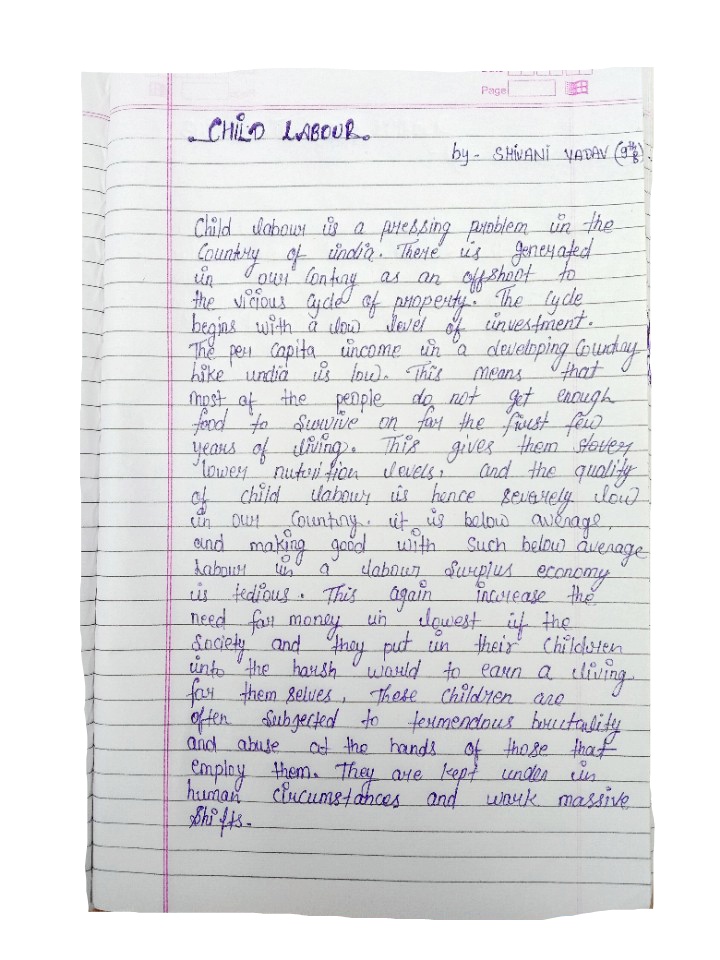 Page
CHILD LABOUR.
by - SHIVANI YADAV (9th B)
Child labour is a pressing problem in the
Country of india. There is generated
in our Contry as an offshoot to
the vicious cycle of property. The cycle
begins with a low level of investment.
The per capita income in a developing Country
like india is low. This means that
most of the people do not get enough
food to survive on for the first few
years of living. This gives them
lower nutrition levels, and the quality
of child labour is hence severely low
in our country. it is below average,
and making good with such below average
labour in a labour surplus economy
is tedious. This again increase the
need for money in lowest if the
society and they put in their children
into the harsh world to earn a living
for them selves. These children are
often subjected to termendous brutality
and abuse at the hands of those that
employ them. They are kept under in
human circumstances and work massive
shifts.